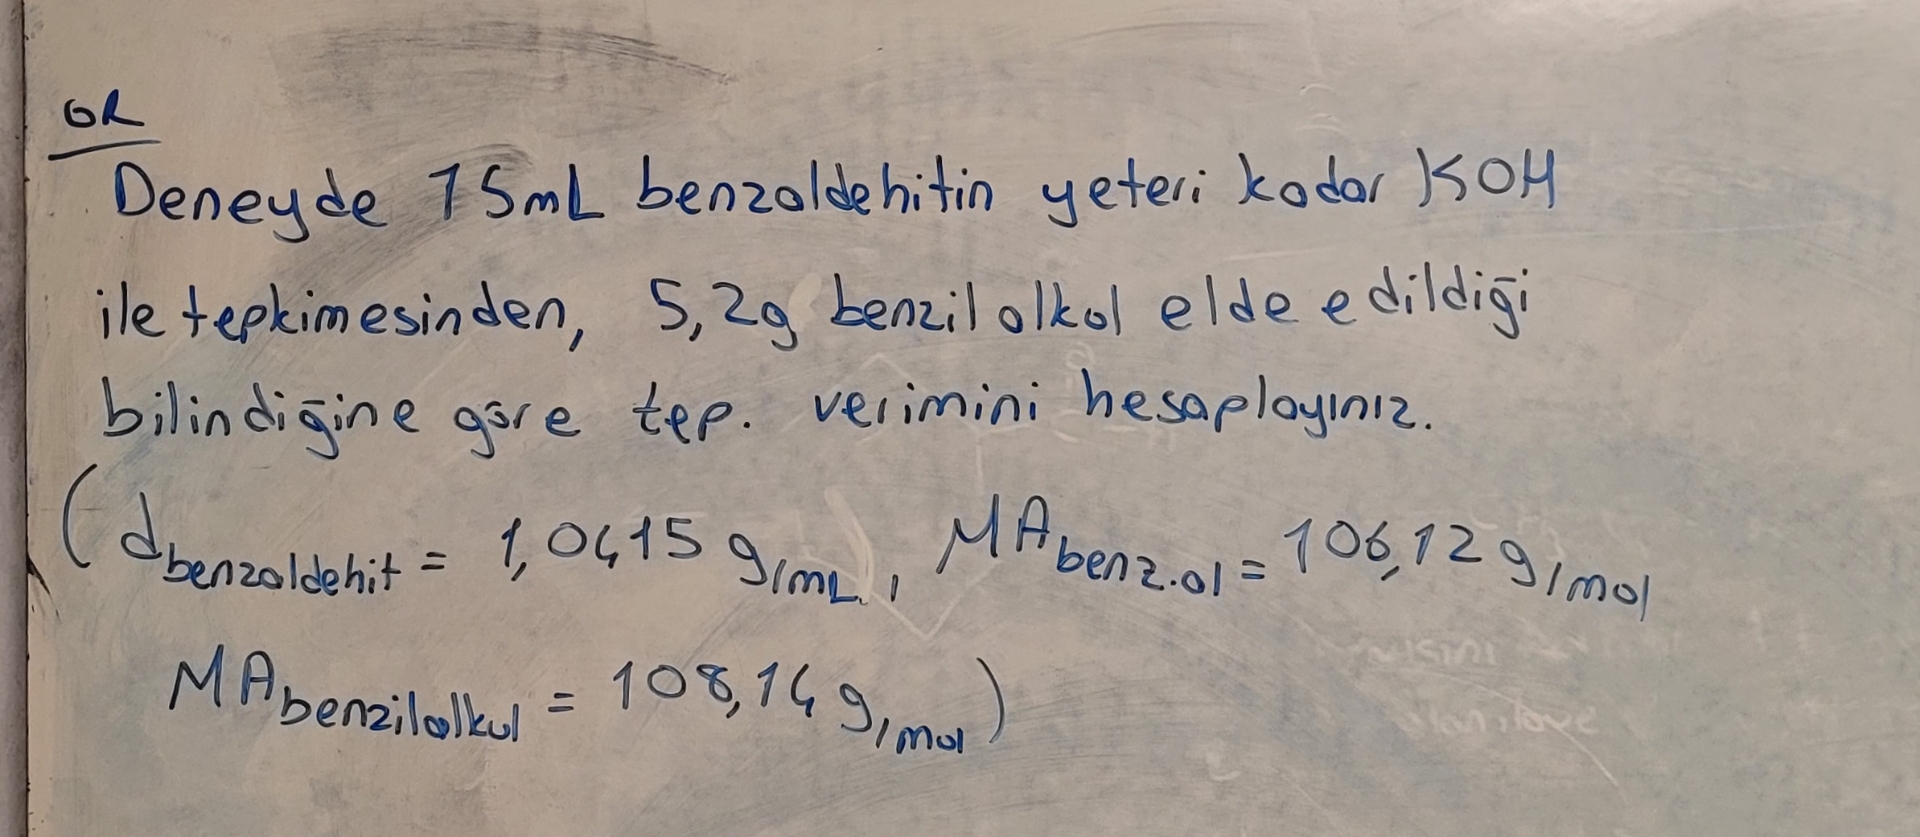 ÖR
Deneyde 15mL benzaldehitin yeteri kadar KOH
ile tepkimesinden, 5,2g benzil alkol elde edildiği
bilindiğine göre tep. verimini hesaplayınız.
(d benzaldehit = 1,0415 g/mL, MA benz.al = 106,12 g/mol
MA benzilalkol = 108,14 g/mol)